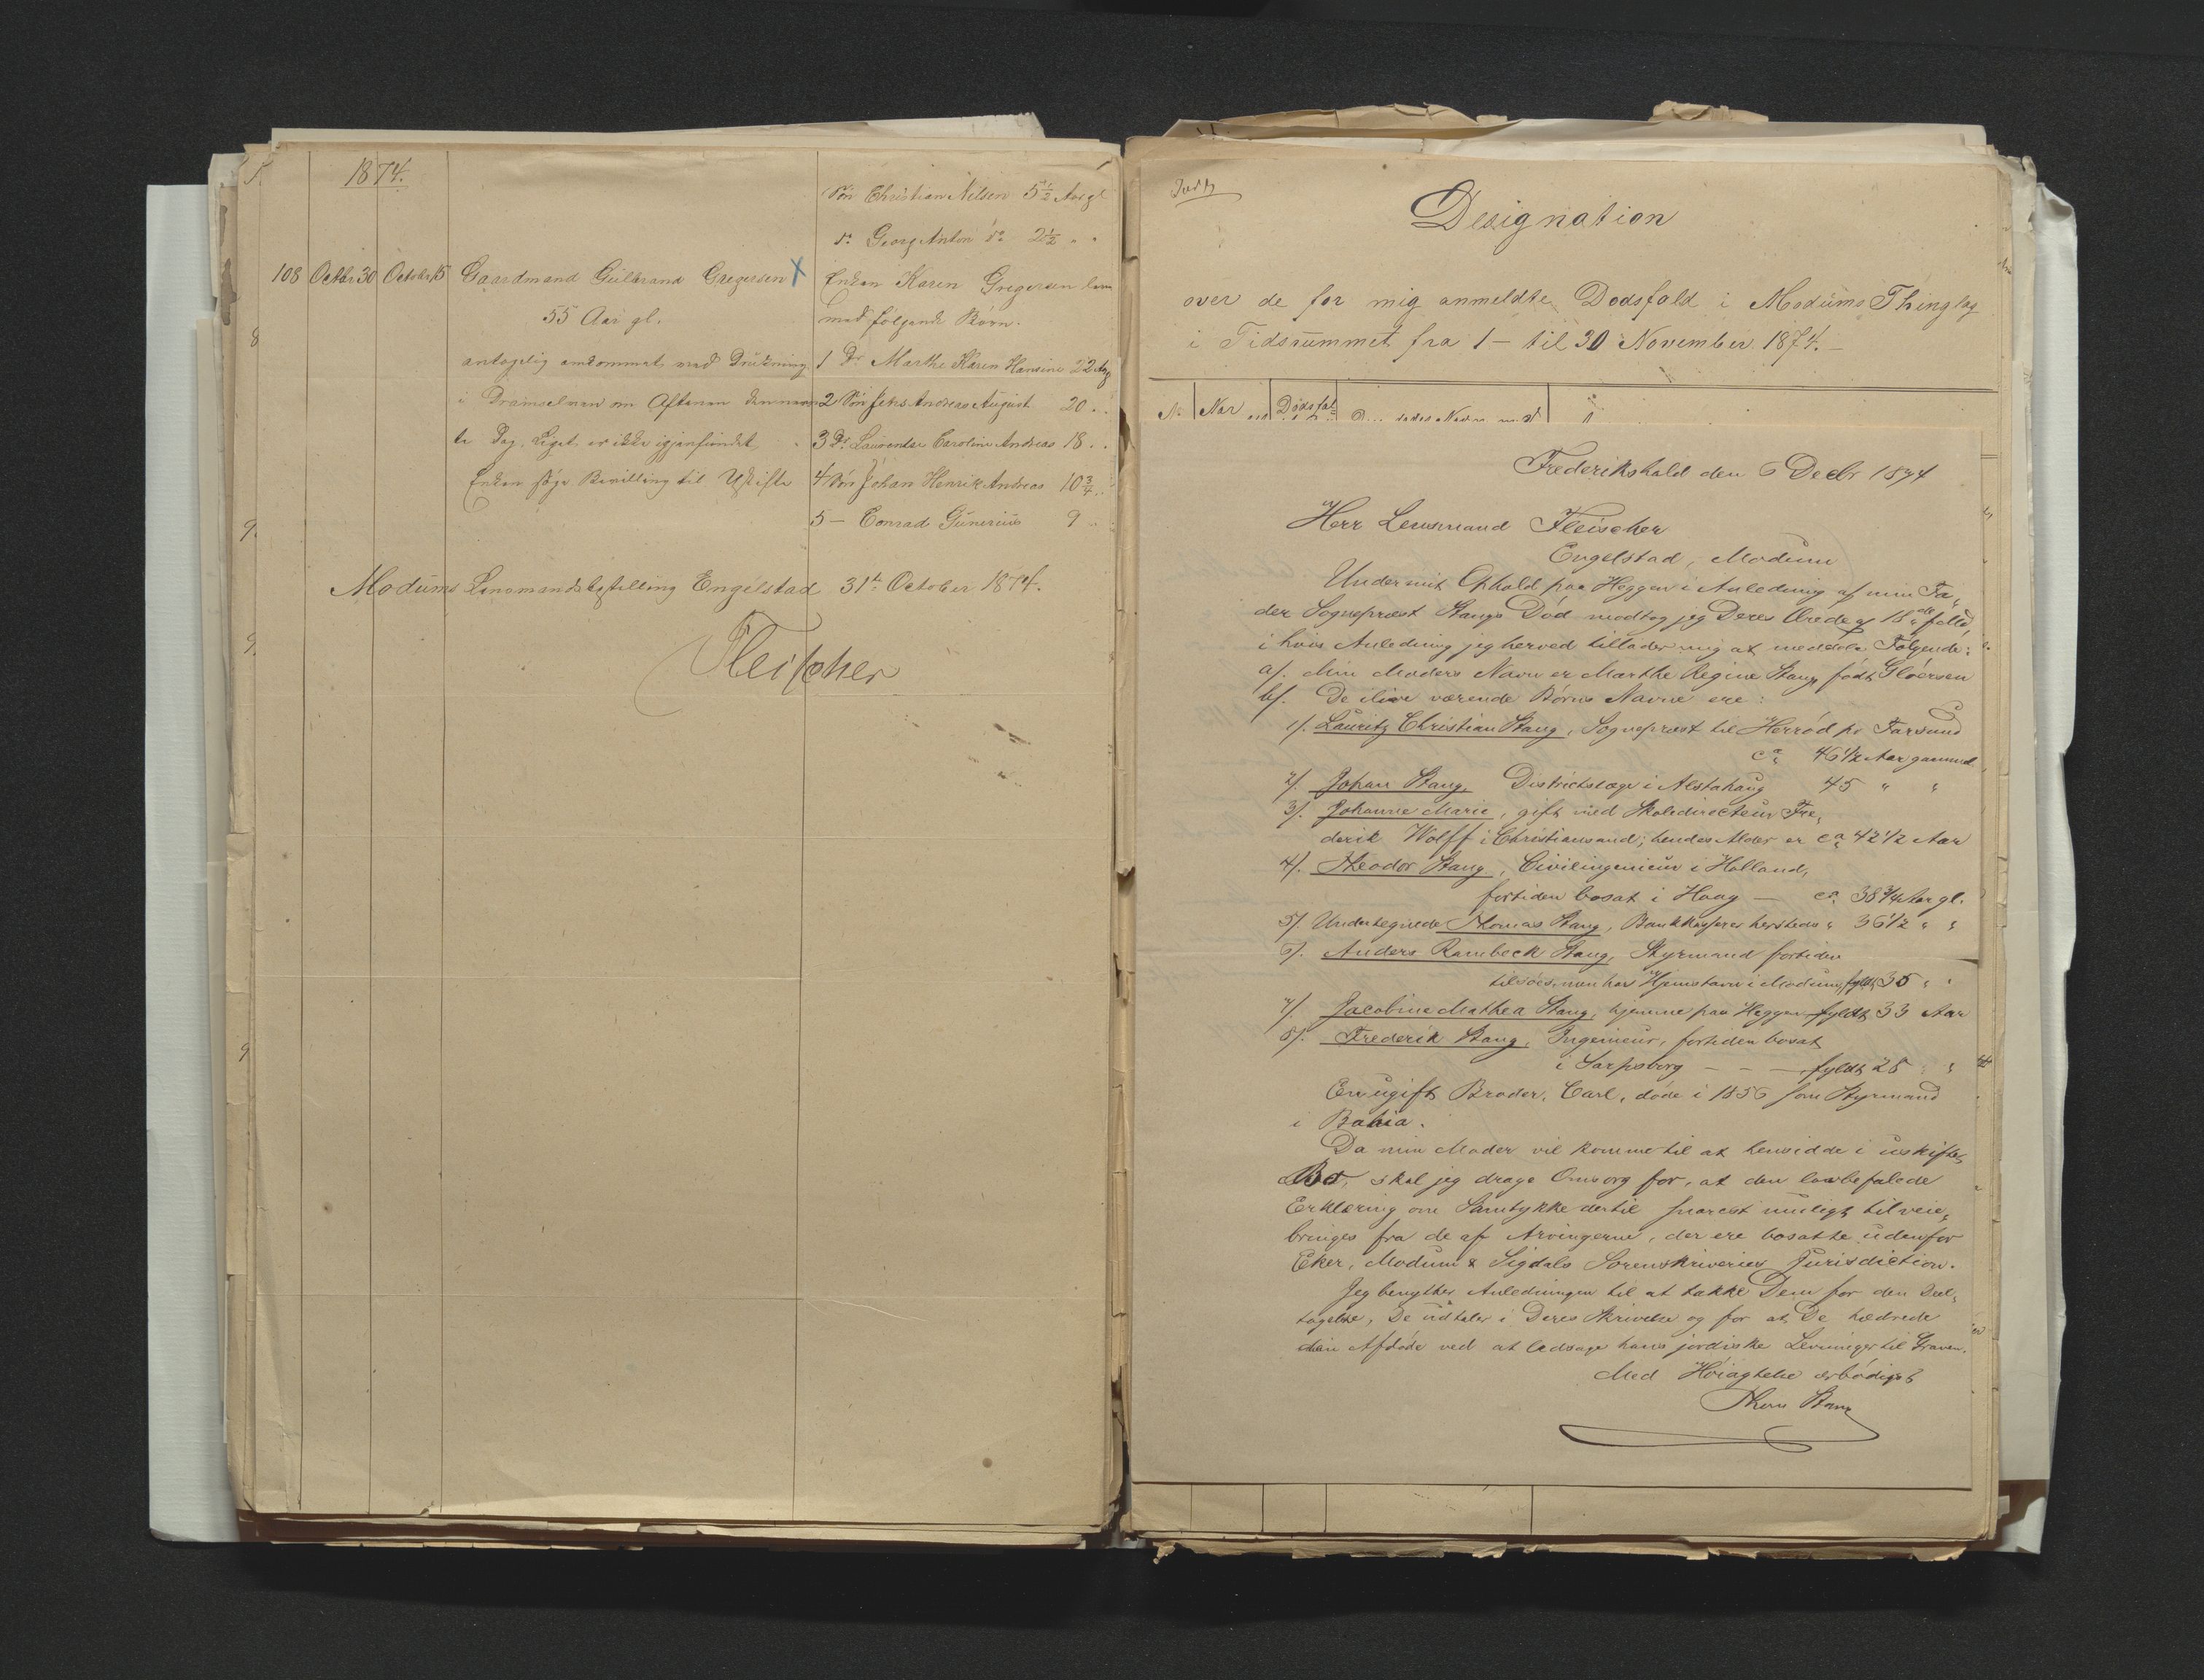 1874.
Søn Christian Nilsen 5 1/2 Aar gl
do Georg Anton do 2 1/2 " "
108 Octbr 30 Octobr 15 Gaardmand Gulbrand Gregersen X
55 Aar gl.
antagelig omkommet ved Drukning
i Dramselven om Aftenen den nævn
te Dag. Liget er ikke igjenfundet
Enken søger Bevilling til Uskifte
Enken Karen Gregersen
med følgende Børn.
1 Dr Marthe Karen Hansine 22 Aar
2 Søn Jens Andreas August 20 " "
3 Dr Laurentse Caroline Andreas 18 " "
4 Søn Johan Henrik Andreas 10 3/4 "
5 — Conrad Gunerius 9 "
Modums Lensmandsbestilling Engelstad 31t October 1874.
Fleischer
Designation
over de for mig anmeldte Dødsfald i Modums Thinglag
i Tidsrummet fra 1 — til 30 November 1874. —
No Naar Dødsfal
Frederikshald den 6 Decbr 1874
Herr Lensmand Fleischer
Engelstad, Modum
Under mit Ophold paa Heggen i Anledning af min Fa,
der Sognepræst Stangs Død modtog jeg Deres Ærede af 18de f. Md,
i hvis Anledning jeg herved tillader mig at meddele Følgende:
a/. Min Moders Navn er Marthe Regine Stang født Gløersen
b/. De ilive værende Børns Navne ere:
1/. Lauritz Christian Stang, Sognepræst til Herrød pr Farsund
ca 46 1/2 Aar gammel
2/. Johan Stang, Districtslæge i Alstahaug 45 " "
3/. Johanne Marie, gift med Skoledirecteur Fre,
derik Wolff i Christiansand; hendes Alder er ca 42 1/2 Aar
4/. Theodor Stang, Civilingenieur i Holland,
fortiden bosat i Haag — ca 38 3/4 Aar gl.
5/. Undertegnede Thomas Stang, Bankkasserer hersteds " 36 1/2 " "
6/. Anders Rambeck Stang, Styrmand fortiden
tilsøes, men har Hjemstavn i Modum, fyldt 35 " "
7/. Jacobine Mathea Stang, hjemme paa Heggen fyldt 33 Aar
8/. Frederik Stang, Ingenieur, fortiden bosat
i Sarpsborg — — — fyldt 28 " "
En ugift Broder, Carl, døde i 1856 som Styrmand
i Bahia.
Da min Moder vil komme til at hensidde i uskiftet
Bo, skal jeg drage Omsorg for, at den lovbefalede
Erklæring om Samtykke dertil snarest muligt tilveie,
bringes fra de af Arvingerne, der ere bosatte udenfor
Eker, Modum & Sigdals Sorenskriveries Jurisdiction.
Jeg benytter Anledningen til at takke Dem for den Deel,
tagelse, De udtaler i Deres Skrivelse og for at De hædrede
den Afdøde ved at ledsage hans jordiske Levninger til Graven.
Med Høiagtelse ærbødigst
Thom Stang